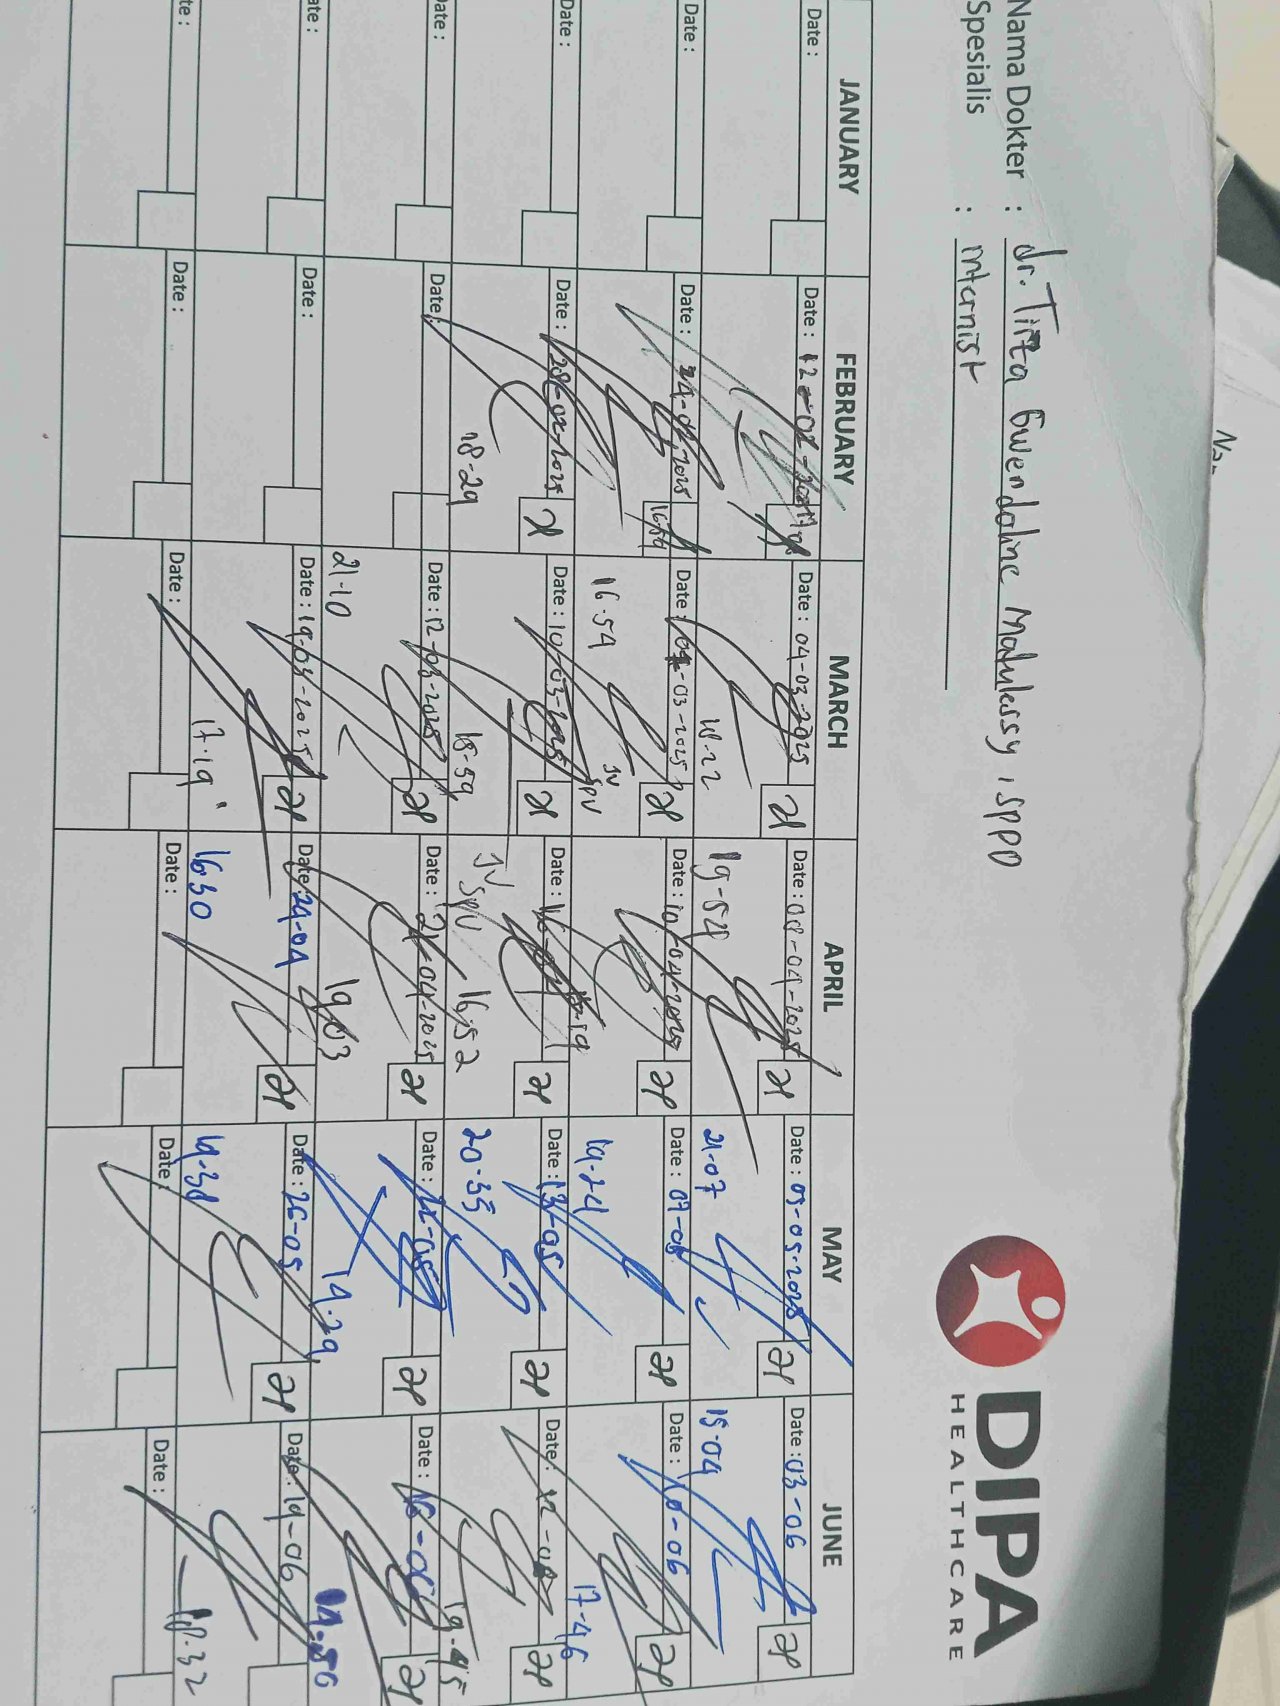 DIPA
HEALTHCARE
Nama Dokter : dr. Tirta Gwendoline Matulessy, SPPD
Spesialis : internist
JANUARY FEBRUARY MARCH APRIL MAY JUNE
Date : Date : 12-02-2025 Date : 04-03-2025 Date : 08-04-2025 Date : 03-05-2025 Date : 03-06
18-22 19-52 21-07 15-04
Date : Date : 24-02-2025 Date : -03-2025 Date : 10-04-2025 Date : 07-05 Date : 10-06
16.54 JV SPV 19-24 17-46
Date : Date : 28-02-2025 Date : 10-03-2025 Date : 16-04 Date : 13-05 Date : 12-06
18-29 18-59 JV SPV 16.52 20-35 19-45
Date : Date : Date : 12-03-2025 Date : 21-04-2025 Date : Date : 18-06
21-10 19.03 14.29
Date : Date : Date : 19-03-2025 Date : 24-04 Date : 26-05 Date : 19-06
17.19 16.30 19-38 18.32
Date : Date : Date : Date : Date : Date :